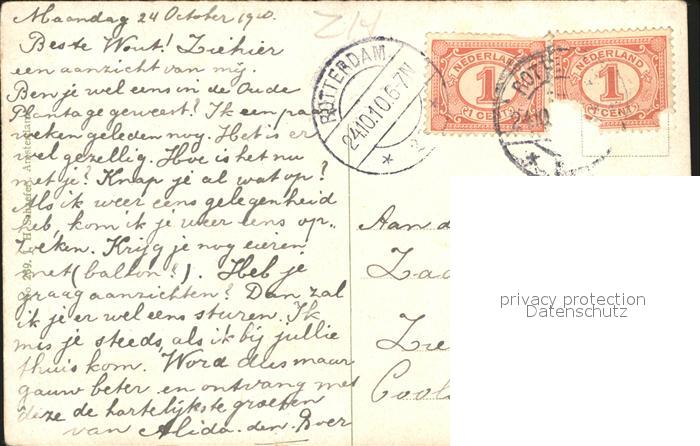 Maandag 24 October 1910.
Z14
Beste Wout! Ziehier
een aanzicht van mij.
Ben je wel eens in de Oude
Plantage geweest? Ik een paar
weken geleden nog. Het is er
wel gezellig. Hoe is het nu
met je? Knap je al wat op?
Als ik weer eens gelegenheid
heb, kom ik je weer eens op-
zoeken. Krijg je nog eieren
met (balton?). Heb je
graag aanzichten? Dan zal
ik je er wel eens sturen. Ik
mis je steeds, als ik bij jullie
thuis kom. Word dus maar
gauw beter en ontvang met
deze de hartelijkste groeten
van Alida den Boer
ROTTERDAM
24.10.10.6-7N
NEDERLAND
1
1 CENT
NEDERLAND
1
1 CENT
ROTT
24.10
Aan d
Za
Zie
Cools
privacy protection
Datenschutz
No 289. J. H. Schaefer, Amsterdam